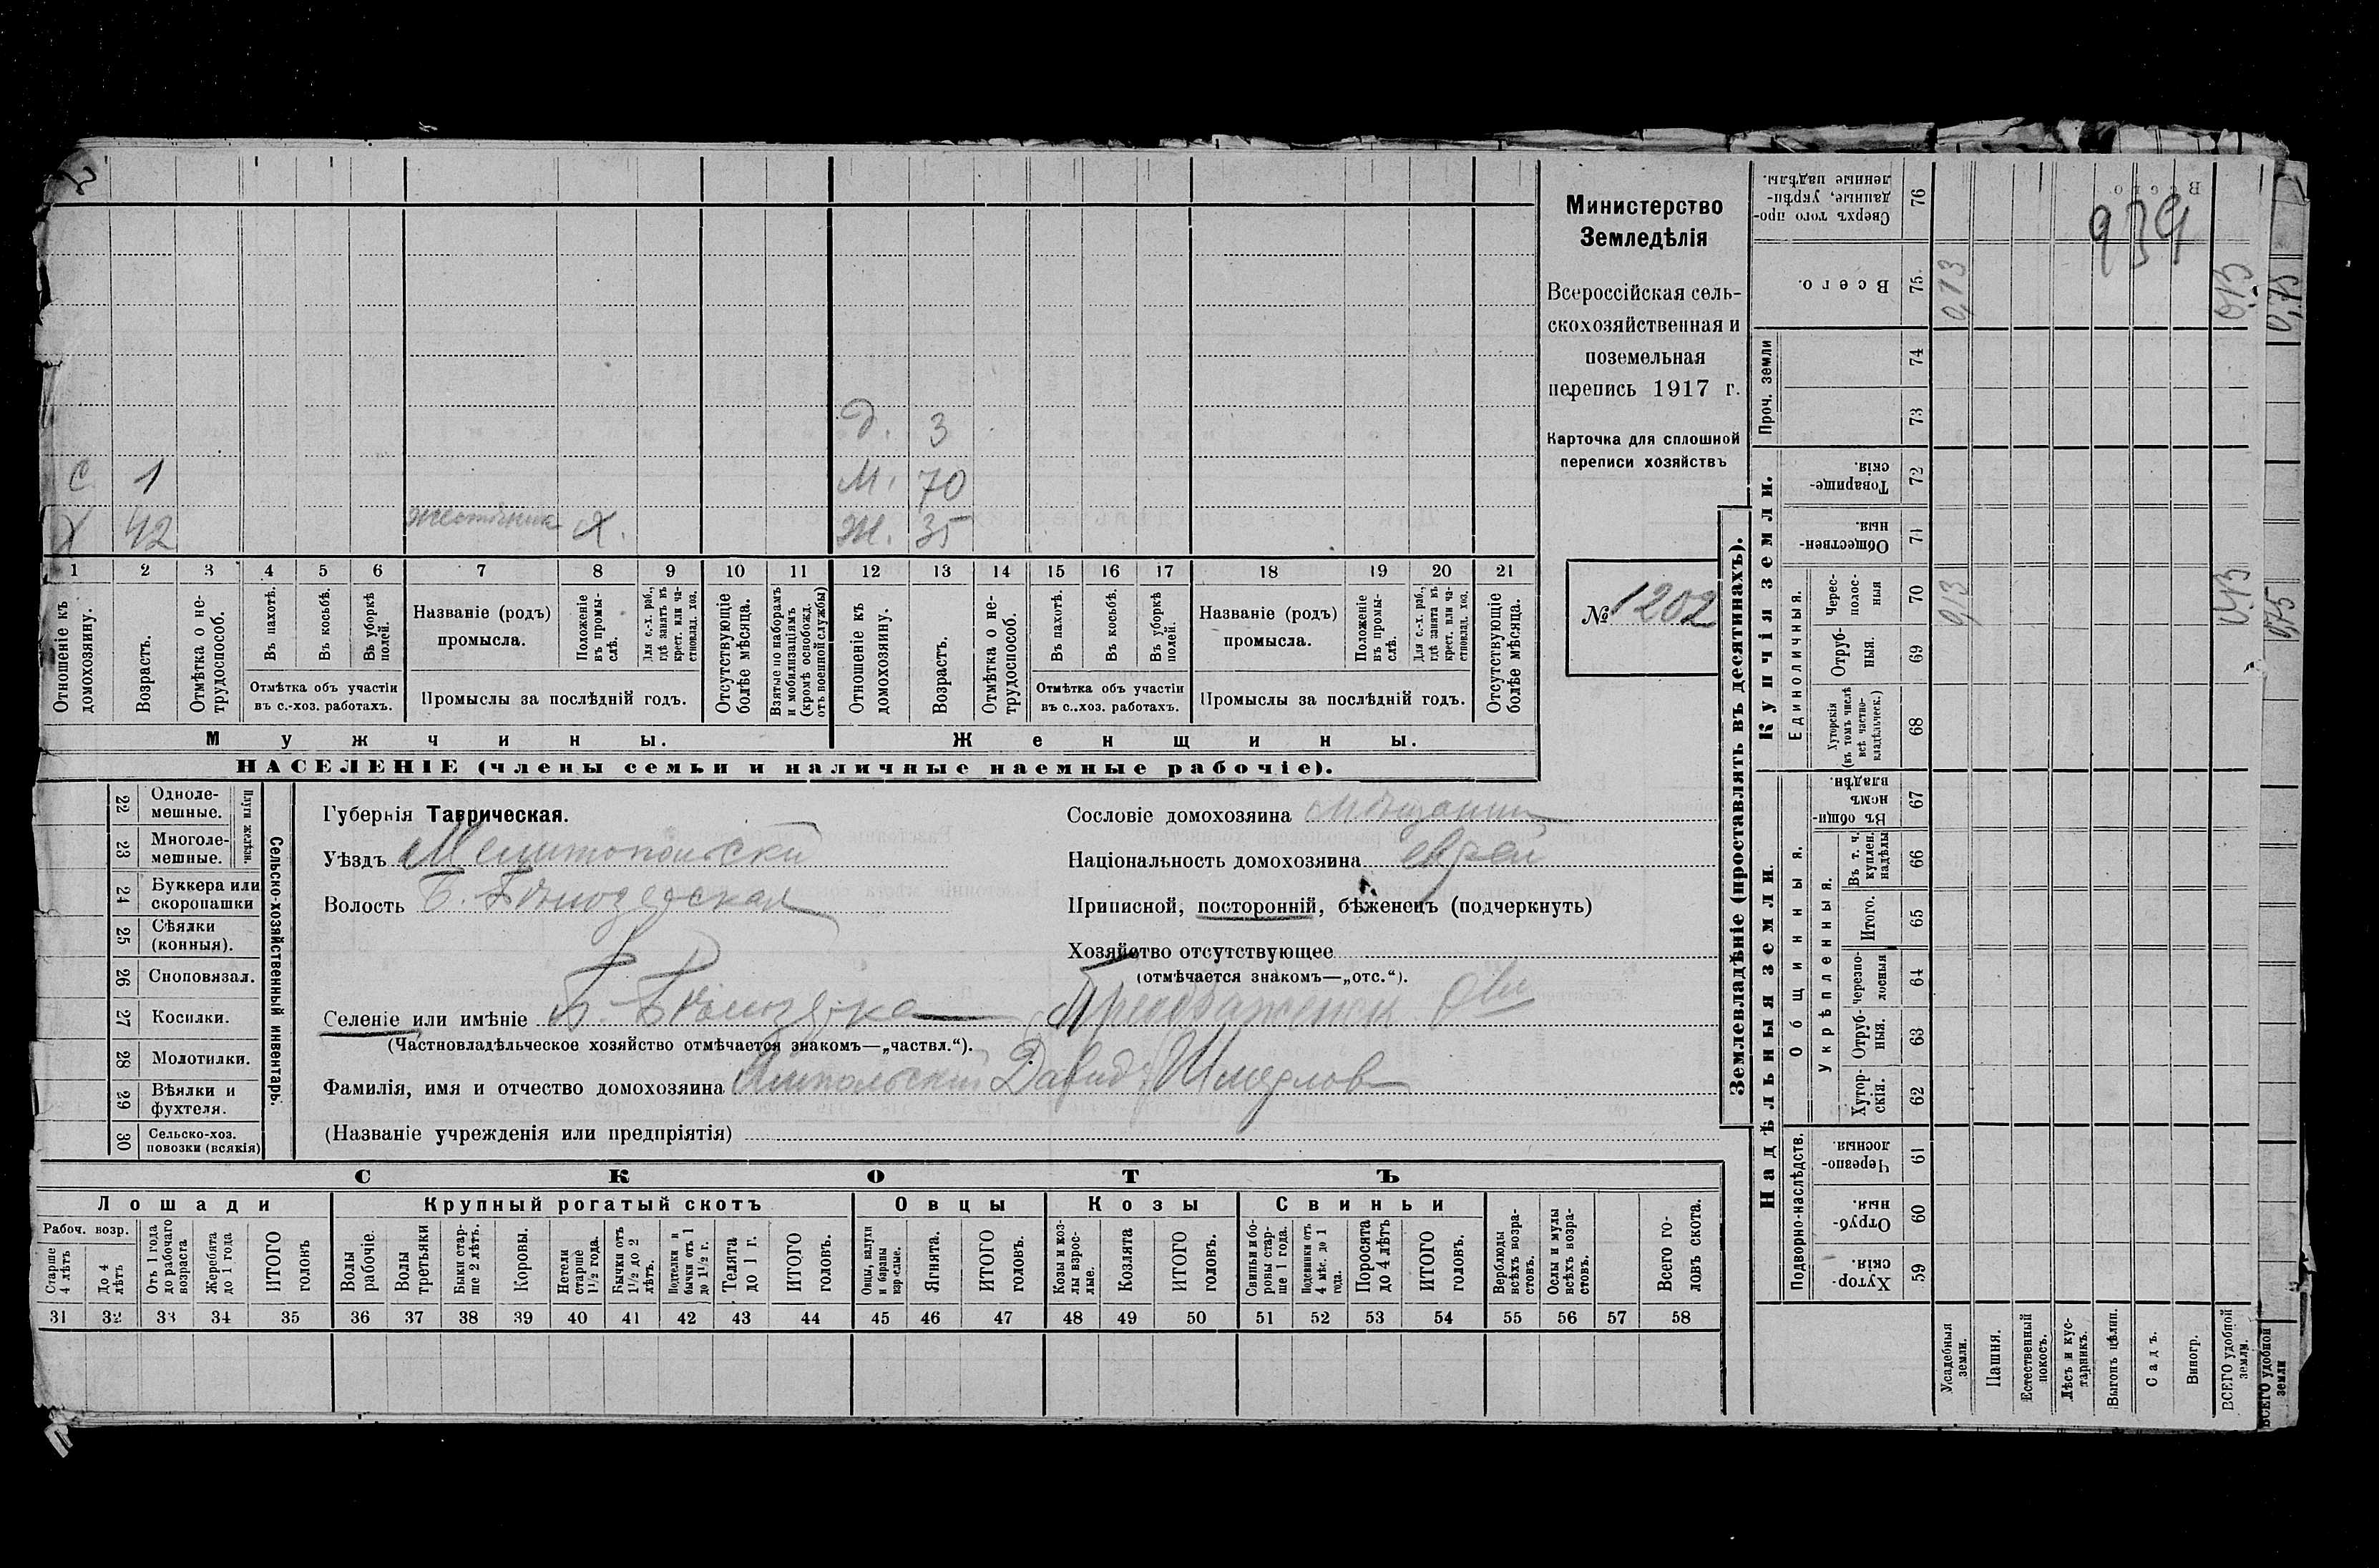 Министерство
Земледѣлія
Всероссійская сель-
скохозяйственная и
поземельная
перепись 1917 г.
Карточка для сплошной
переписи хозяйствъ
№ 1202
939
Д. 3
С 1 М. 70
Х 42 Х. Ж. 35
1 2 3 4 5 6 7 8 9 10 11 12 13 14 15 16 17 18 19 20 21
Отношеніе къ домохозяину.
Возрастъ.
Отмѣтка о не-трудоспособ.
Въ пахотѣ.
Въ косьбѣ.
Въ уборкѣ полей.
Отмѣтка объ участіи въ с.-хоз. работахъ.
Названіе (родъ) промысла.
Положеніе въ промы-слѣ.
Для с.-х. раб., гдѣ занятъ въ крест. или ча-стновлад. хоз.
Промыслы за послѣдній годъ.
Отсутствующіе болѣе мѣсяца.
Взятые по наборамъ и мобилизаціямъ (кромѣ освобожд. отъ военной службы)
Отношеніе къ домохозяину.
Возрастъ.
Отмѣтка о не-трудоспособ.
Въ пахотѣ.
Въ косьбѣ.
Въ уборкѣ полей.
Отмѣтка объ участіи въ с..хоз. работахъ.
Названіе (родъ) промысла.
Положеніе въ промы-слѣ.
Для с.-х. раб., гдѣ занятъ въ крест. или ча-стновлад. хоз.
Промыслы за послѣдній годъ.
Отсутствующіе болѣе мѣсяца.
Мужчины. Женщины.
НАСЕЛЕНІЕ (члены семьи и наличные наемные рабочіе).
22 Одноле-мешные.
23 Многоле-мешные.
Плуги желѣзн.
24 Буккера или скоропашки
25 Сѣялки (конныя).
26 Сноповязал.
27 Косилки.
28 Молотилки.
29 Вѣялки и фухтеля.
30 Сельско-хоз. повозки (всякія)
Сельско-хозяйственный инвентарь.
Губернія Таврическая.
Уѣздъ Мелитопольскій
Волость Б. Бѣлозерская
Селеніе или имѣніе Б. Бѣлозерка
(Частновладѣльческое хозяйство отмѣчается знакомъ—„частвл.“).
Фамилія, имя и отчество домохозяина Ямпольскій Давид Шмерлов
(Названіе учрежденія или предпріятія)
Сословіе домохозяина мѣщанин
Національность домохозяина еврей
Приписной, посторонній, бѣженецъ (подчеркнуть)
Хозяйство отсутствующее
(отмѣчается знакомъ—„отс.“).
СКОТЪ
Лошади Крупный рогатый скотъ Овцы Козы Свиньи
Рабоч. возр.
Старше 4 лѣтъ
До 4 лѣтъ
Отъ 1 года до рабочаго возраста
Жеребята до 1 года
ИТОГО головъ
Волы рабочіе.
Волы третьяки
Быки стар-ше 2 лѣтъ.
Коровы.
Нетели старше 1½ года.
Бычки отъ 1½ до 2 лѣтъ.
Подтелки и бычки отъ 1 до 1½ г.
Телята до 1 г.
ИТОГО головъ.
Овцы, валухи и бараны взрослые.
Ягнята.
ИТОГО головъ.
Козы и коз-лы взрос-лые.
Козлята
ИТОГО головъ.
Свиньи и бо-ровы стар-ше 1 года.
Подсвинки отъ 4 мѣс. до 1 года.
Поросята до 4 лѣтъ
ИТОГО головъ.
Верблюды всѣхъ возра-стовъ.
Ослы и мулы всѣхъ возра-стовъ.
Всего го-ловъ скота.
31 32 33 34 35 36 37 38 39 40 41 42 43 44 45 46 47 48 49 50 51 52 53 54 55 56 57 58
Землевладѣніе (проставлять въ десятинахъ).
Надѣльныя земли. Купчія земли.
Подворно-наслѣдств.
Общинныя.
Укрѣпленныя.
Единоличныя.
Проч. земли
Сверхъ того про-данные, укрѣп-ленные надѣлы. 76
Всего. 75. 0,13
74
73
Товарище-скія. 72
Обществен-ныя. 71
Черес-полос-ныя 70 0,13
Отруб-ныя. 69
Хуторскія (въ томъ числѣ всѣ частно-владѣльческ.) 68
Въ общи-номъ владѣн. 67
Въ т. ч. куплен. надѣлы 66
Итого. 65
Черезпо-лосныя 64
Отруб-ныя. 63
Хутор-скія. 62
Черезпо-лосныя 61
Отруб-ныя. 60
Хутор-скія. 59
Усадебныя земли.
Пашня.
Естественный покосъ.
Лѣсъ и кус-тарникъ.
Выгонъ цѣлин.
Садъ.
Виногр.
ВСЕГО удобной земли.
ВСЕГО удобной земли